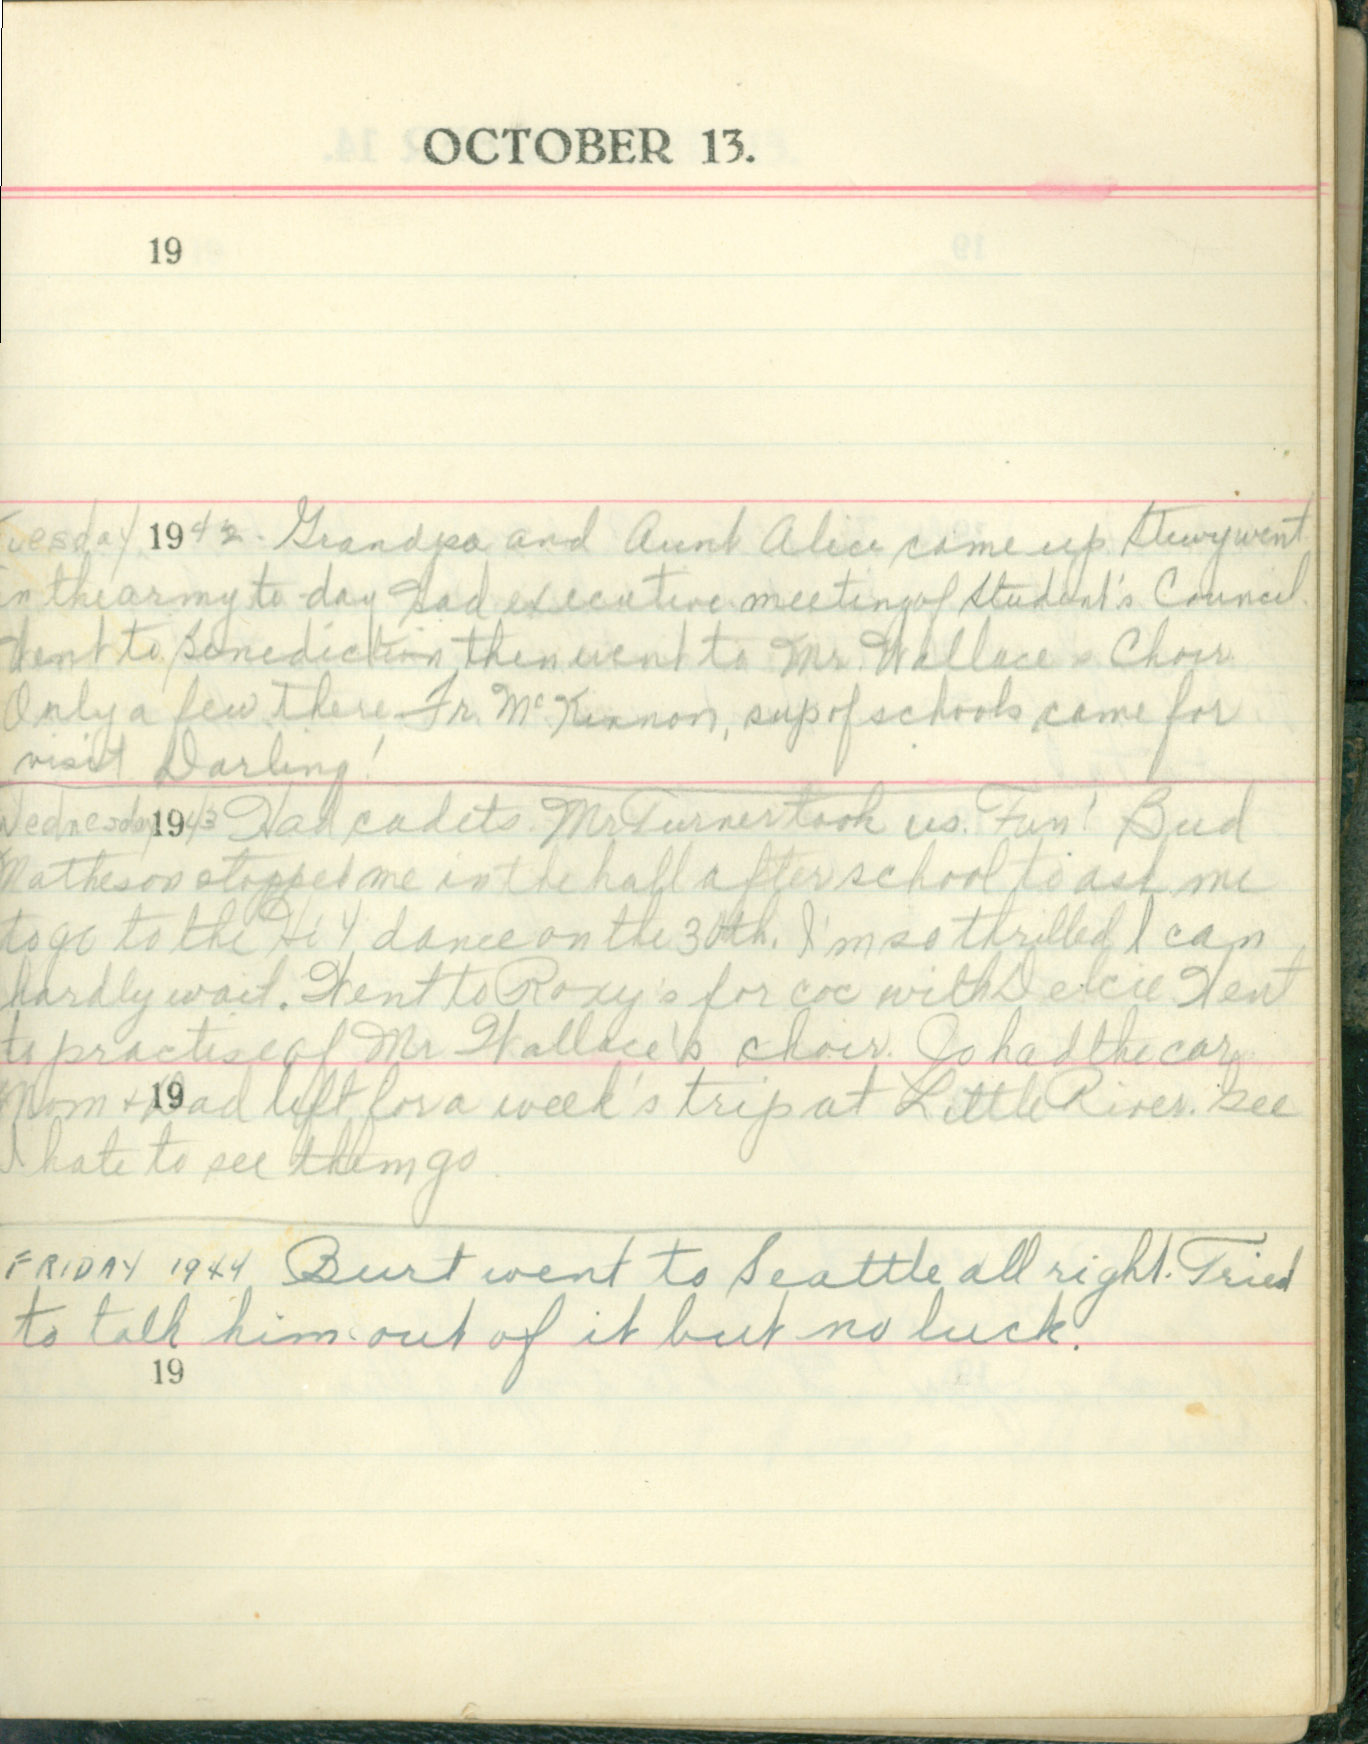 OCTOBER 13.
19
Tuesday 1942. Grandpa and Aunt Alice came up. Stewy went
in the army to-day Had executive meeting of Student's Council.
Went to Benediction then went to Mr. Wallace's Choir.
Only a few there Fr. McKinnon, sup of schools came for
visit Darling!
Wednesday 1943 Had cadets. Mr Turner took us. Fun! Bud
Matheson stopped me in the hall after school to ask me
to go to the Hi Y dance on the 30th. I'm so thrilled I can
hardly wait. Went to Roxy's for coc with Went
to practise of Mr Wallace's choir. Jo had the car
19
Mom & Dad left for a week's trip at Little River. Gee
I hate to see them go.
FRIDAY 1944 Burt went to Seattle all right. Tried
to talk him out of it but no luck.
19